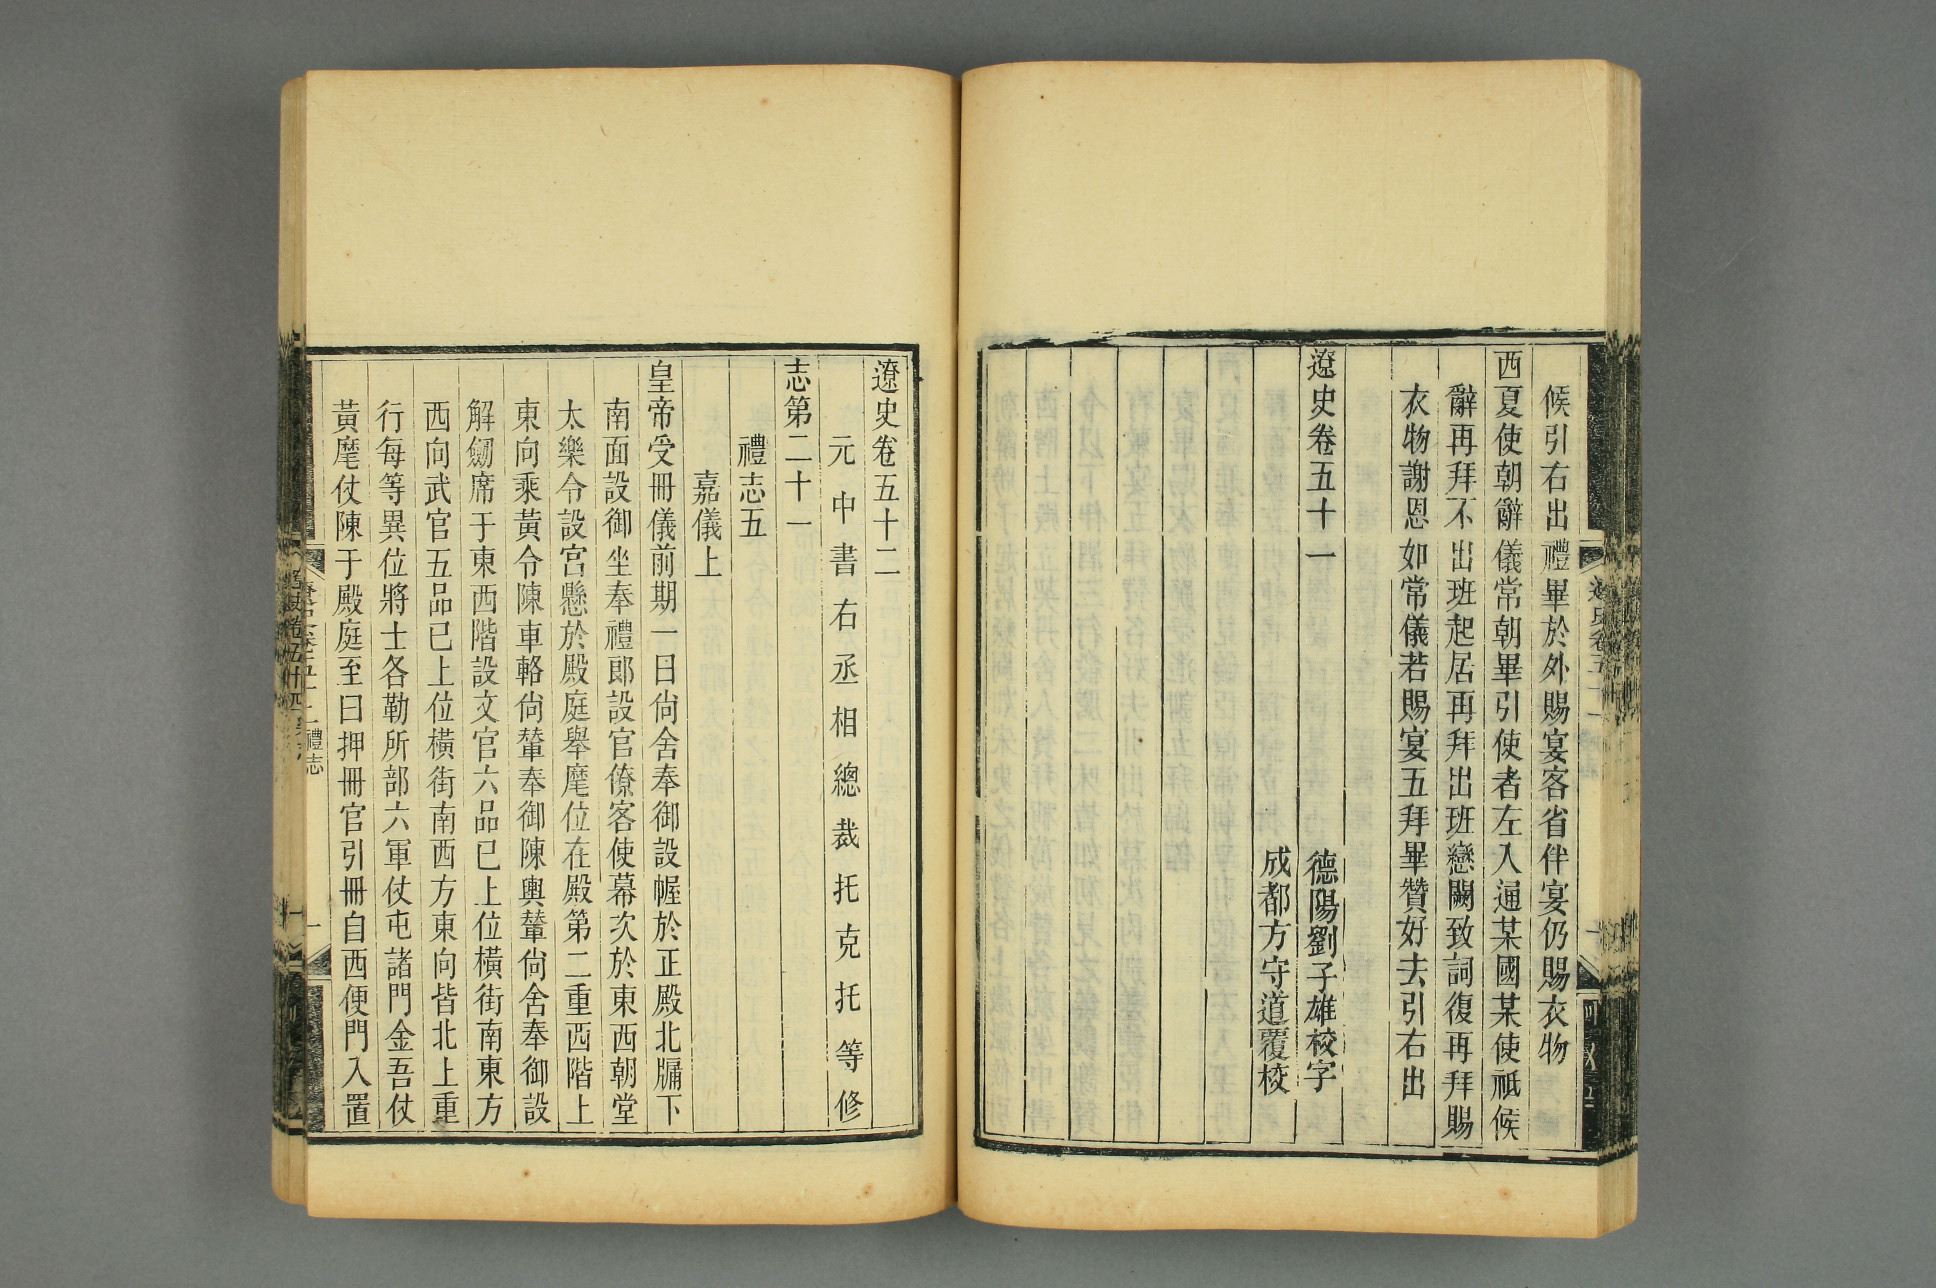 候引右出禮畢於外賜宴客省伴宴仍賜衣物
西夏使朝辭儀常朝畢引使者左入通某國某使祗候
辭再拜不出班起居再拜出班戀闕致詞復再拜賜
衣物謝恩如常儀若賜宴五拜畢贊好去引右出
遼史卷五十一
德陽劉子雄校字
成都方守道覆校
遼史卷五十二
元中書右丞相總裁托克托等修
志第二十一
禮志五
嘉儀上
皇帝受冊儀前期一日尙舍奉御設幄於正殿北牖下
南面設御坐奉禮郎設官僚客使幕次於東西朝堂
太樂令設宮懸於殿庭舉麾位在殿第二重西階上
東向乘黃令陳車輅尙輦奉御陳輿輦尙舍奉御設
解劒席于東西階設文官六品已上位橫街南東方
西向武官五品已上位橫街南西方東向皆北上重
行每等異位將士各勒所部六軍仗屯諸門金吾仗
黃麾仗陳于殿庭至日押冊官引冊自西便門入置